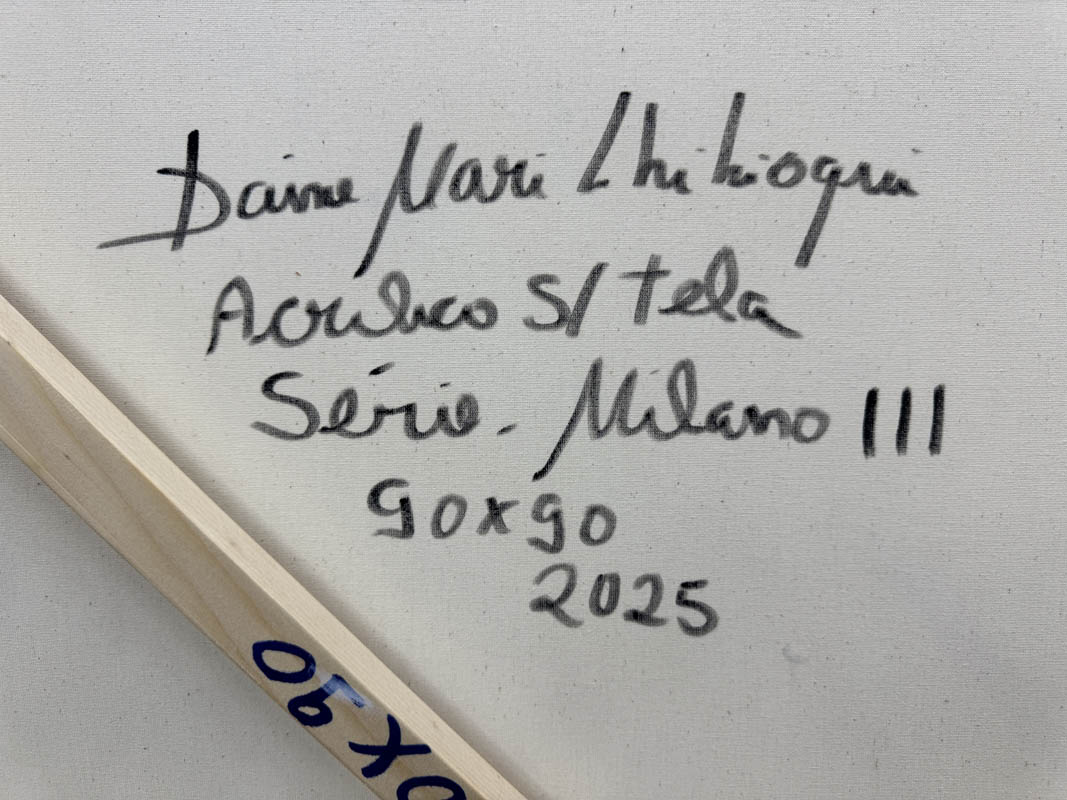 Daine Mari Chikioqui
Acrílico S/ tela
Série - Milano III
90x90
2025
0X90